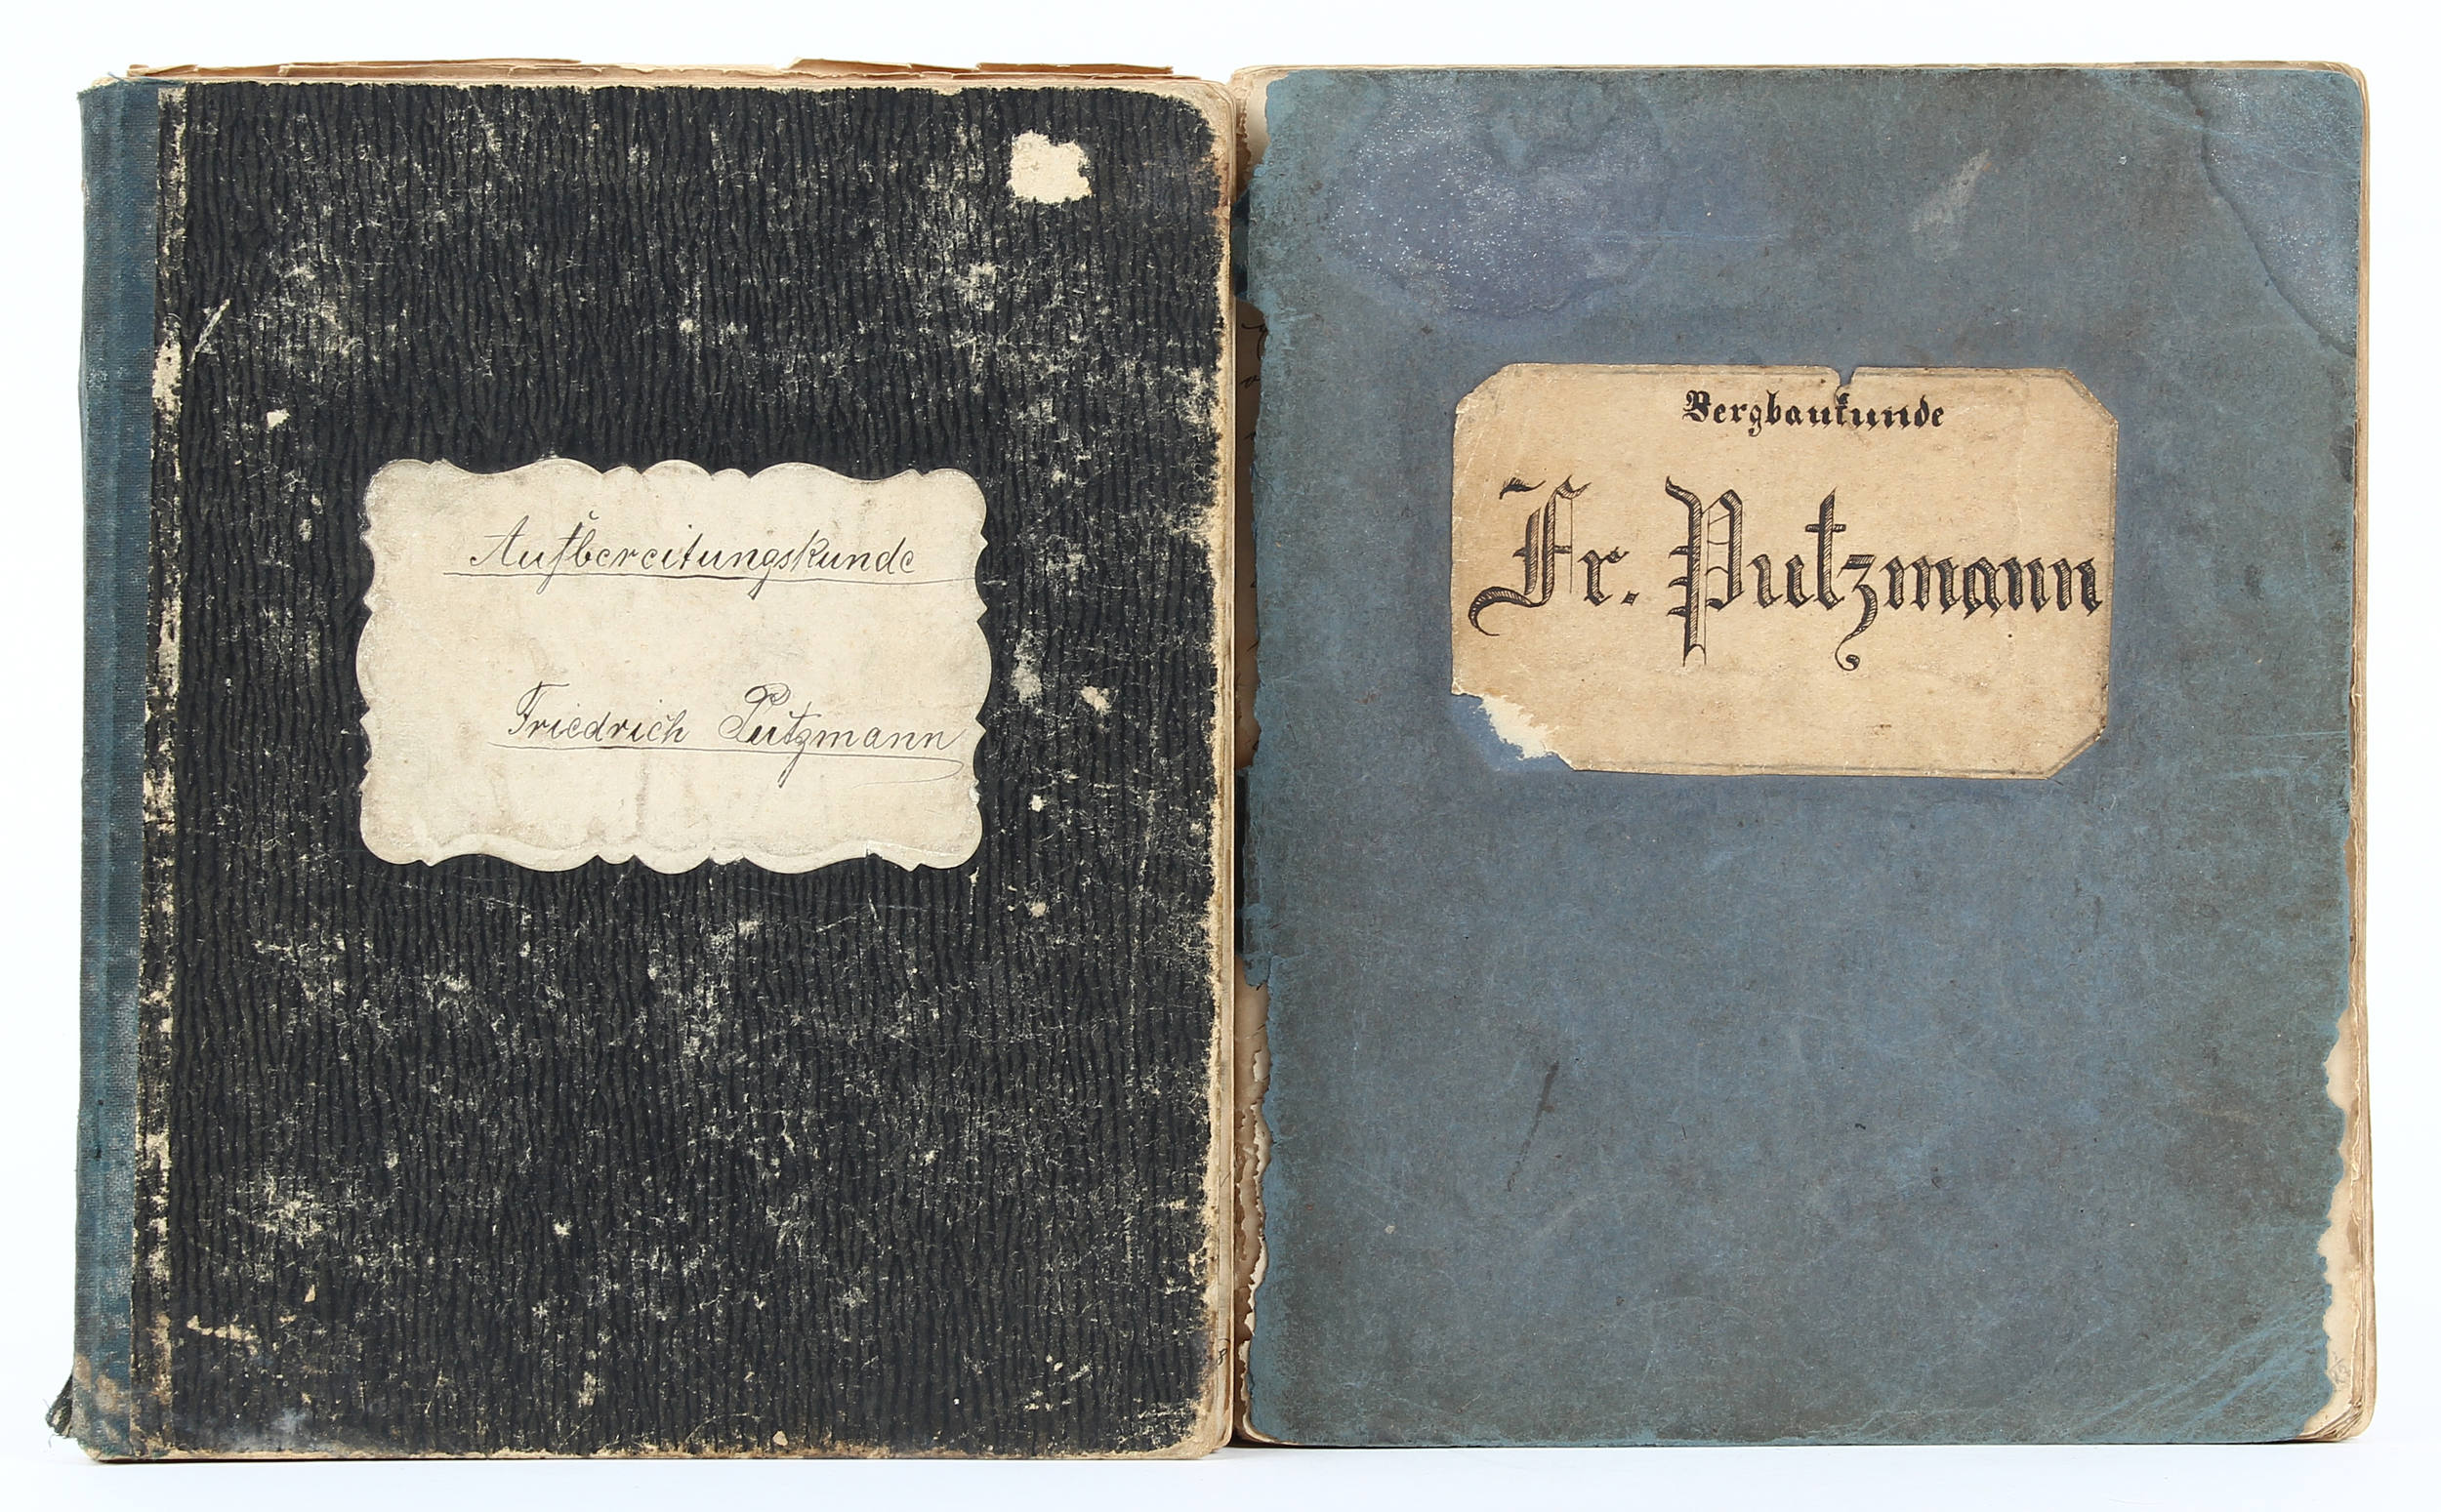 Aufbereitungskunde
Friedrich Putzmann
Bergbaukunde
Fr. Putzmann